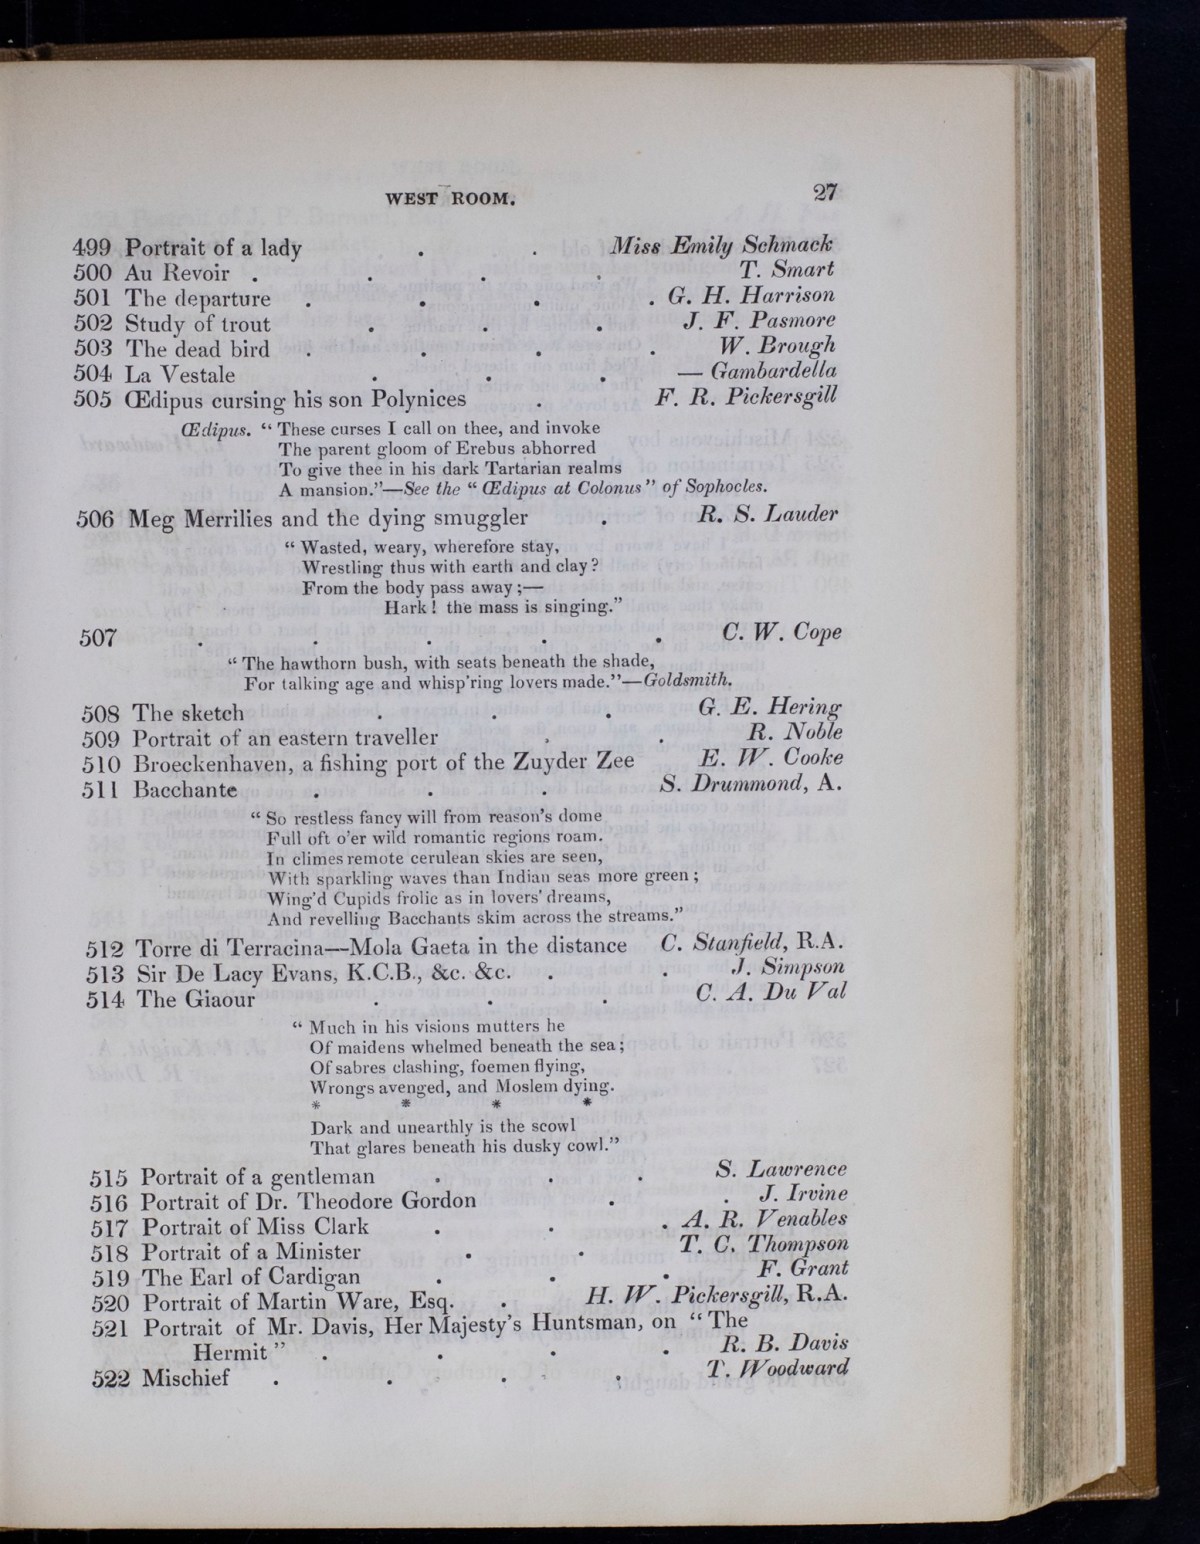 WEST ROOM. 27
499 Portrait of a lady . . Miss Emily Schmack
500 Au Revoir . . . . T. Smart
501 The departure . . . . G. H. Harrison
502 Study of trout . . . J. F. Pasmore
503 The dead bird . . . . W. Brough
504 La Vestale . . . — Gambardella
505 Œdipus cursing his son Polynices . F. R. Pickersgill
Œdipus. “ These curses I call on thee, and invoke
The parent gloom of Erebus abhorred
To give thee in his dark Tartarian realms
A mansion.”—See the “ Œdipus at Colonus ” of Sophocles.
506 Meg Merrilies and the dying smuggler . R. S. Lauder
“ Wasted, weary, wherefore stay,
Wrestling thus with earth and clay ?
From the body pass away ;—
Hark ! the mass is singing.”
507 . . . . . C. W. Cope
“ The hawthorn bush, with seats beneath the shade,
For talking age and whisp'ring lovers made.”—Goldsmith.
508 The sketch . . . G. E. Hering
509 Portrait of an eastern traveller . . R. Noble
510 Broeckenhaven, a fishing port of the Zuyder Zee E. W. Cooke
511 Bacchante . . . S. Drummond, A.
“ So restless fancy will from reason's dome
Full oft o'er wild romantic regions roam.
In climes remote cerulean skies are seen,
With sparkling waves than Indian seas more green ;
Wing'd Cupids frolic as in lovers' dreams,
And revelling Bacchants skim across the streams.”
512 Torre di Terracina—Mola Gaeta in the distance C. Stanfield, R.A.
513 Sir De Lacy Evans, K.C.B., &c. &c. . . J. Simpson
514 The Giaour . . . C. A. Du Val
“ Much in his visions mutters he
Of maidens whelmed beneath the sea ;
Of sabres clashing, foemen flying,
Wrongs avenged, and Moslem dying.
* * * *
Dark and unearthly is the scowl
That glares beneath his dusky cowl.”
515 Portrait of a gentleman . . . S. Lawrence
516 Portrait of Dr. Theodore Gordon . . J. Irvine
517 Portrait of Miss Clark . . . A. R. Venables
518 Portrait of a Minister . . T. C. Thompson
519 The Earl of Cardigan . . . F. Grant
520 Portrait of Martin Ware, Esq. . H. W. Pickersgill, R.A.
521 Portrait of Mr. Davis, Her Majesty's Huntsman, on “ The
Hermit ” . . . . R. B. Davis
522 Mischief . . . . T. Woodward